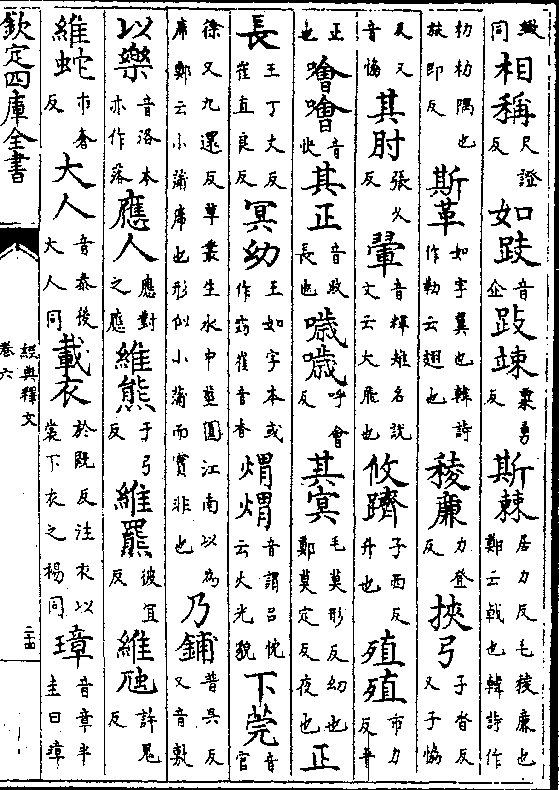 緻同相稱尺證反如跂音企跂竦粟勇反斯棘居力反毛稜廉也鄭云戟也韓詩作
朸朸隅也旅即反斯革如字翼也韓詩作勒云翅也稜廉力登反挾弓子沓反又子協
反又音協其肘張久反翬音輝雉名說文云大飛也攸躋子西反升也殖殖市力反平
正也噲噲音快其正音政長也噦噦呼會反其冥毛莫形反幼也鄭莫定反夜也正
長王丁丈反崔直良反冥幼王如字本或作窈崔音杳煟煟音謂呂忱云火光貌下莞音官
徐又九還反草叢生水中莖圓江南以為席鄭云小蒲席也形似小蒲而實非也乃鋪普吳反又音敷
以樂音洛本亦作落應人應對之應維熊于弓反維羆彼宜反維虺許鬼反
維蛇市奢反大人音泰後大人同載衣於既反注衣以裳下衣之裼同璋音章半圭曰璋
欽定四庫全書
經典釋文
卷六